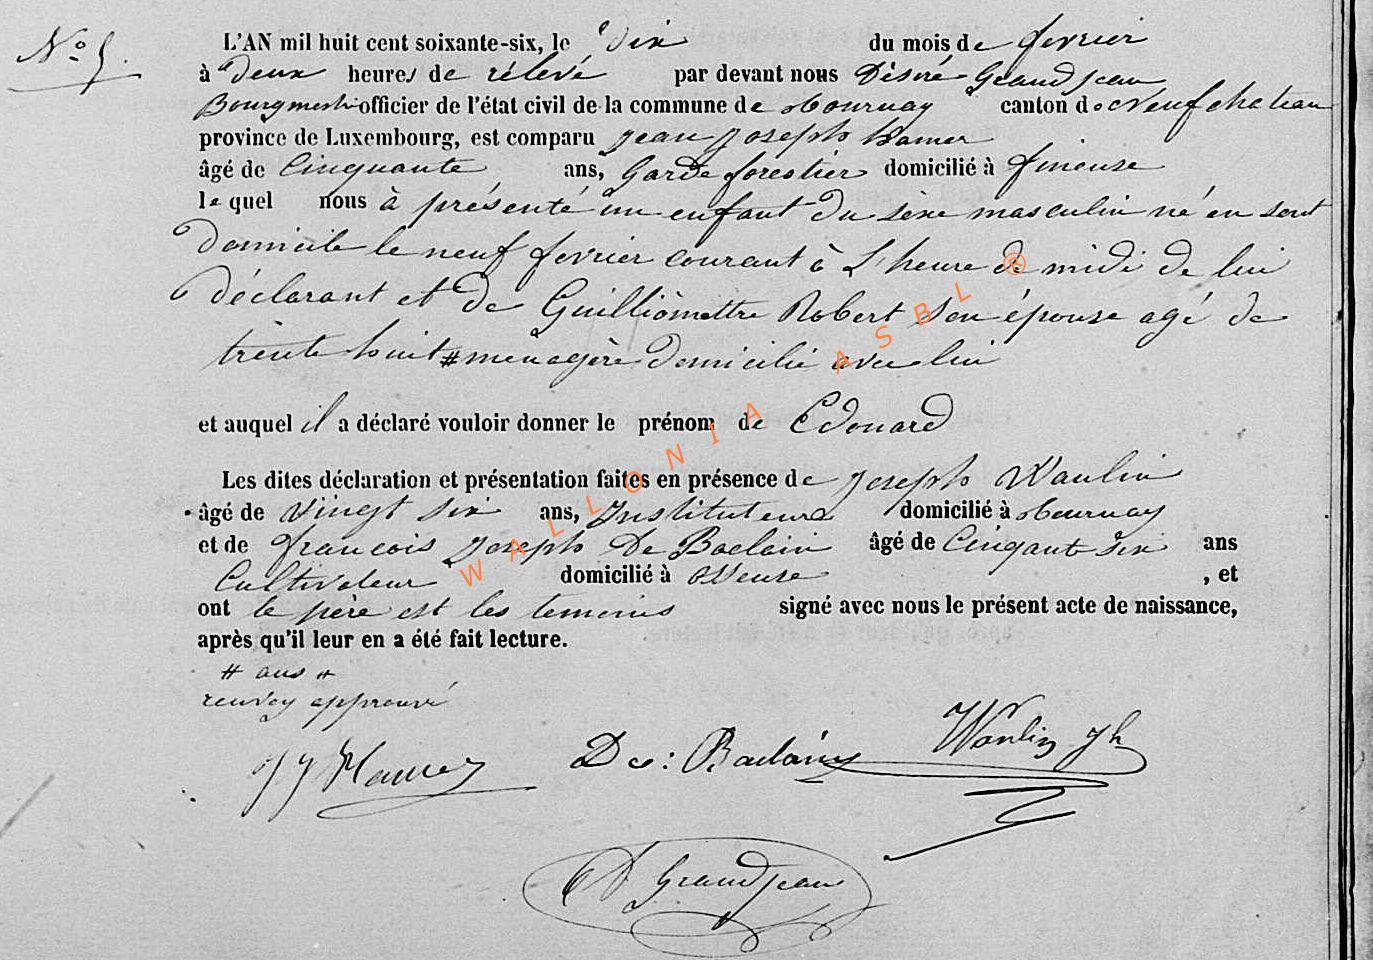 N° 5.
L'AN mil huit cent soixante-six, le dix du mois de fevrier
à deux heures de rélevé par devant nous Désiré Grandjean
Bourgmestre officier de l'état civil de la commune de tournay canton de Neufchateau
province de Luxembourg, est comparu Jean Joseph Hamer
âgé de Cinquante ans, Garde forestier domicilié à fineuse
le quel nous à présenté un enfant du sexe masculin né en sont
domicile le neuf fevrier courant à L'heure de midi de lui
déclarant et de Guilliömettre Robert son épouse agé de
trente huit # menagère domicilié avec lui
et auquel il a déclaré vouloir donner le prénom de Edouard
Les dites déclaration et présentation faites en présence de Joseph Wanlin
âgé de vingt six ans, Instituteur domicilié à tournay
et de francois Joseph De Baclain âgé de Cinqant six ans
Cultivateur domicilié à , et
ont le père est les temoins signé avec nous le présent acte de naissance,
après qu'il leur en a été fait lecture.
# ans #
renvoy approuvé
JJ Hamer De: Baclain Wanlin Jh
D Grandjean
WALLONIA ASBL ®